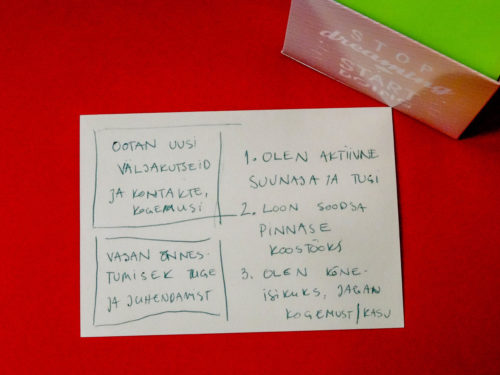 STOP
dreaming
START
OOTAN UUSI
VÄLJAKUTSEID
JA KONTAKTE,
KOGEMUSI
VAJAN ÕNNES-
TUMISEK TUGE
JA JUHENDAMIST
1. OLEN AKTIIVNE
SUUNAJA JA TUGI
2. LOON SOODSA
PINNASE
KOOSTÖÖKS
3. OLEN KÕNE-
ISIKUKS, JAGAN
KOGEMUST/KASU